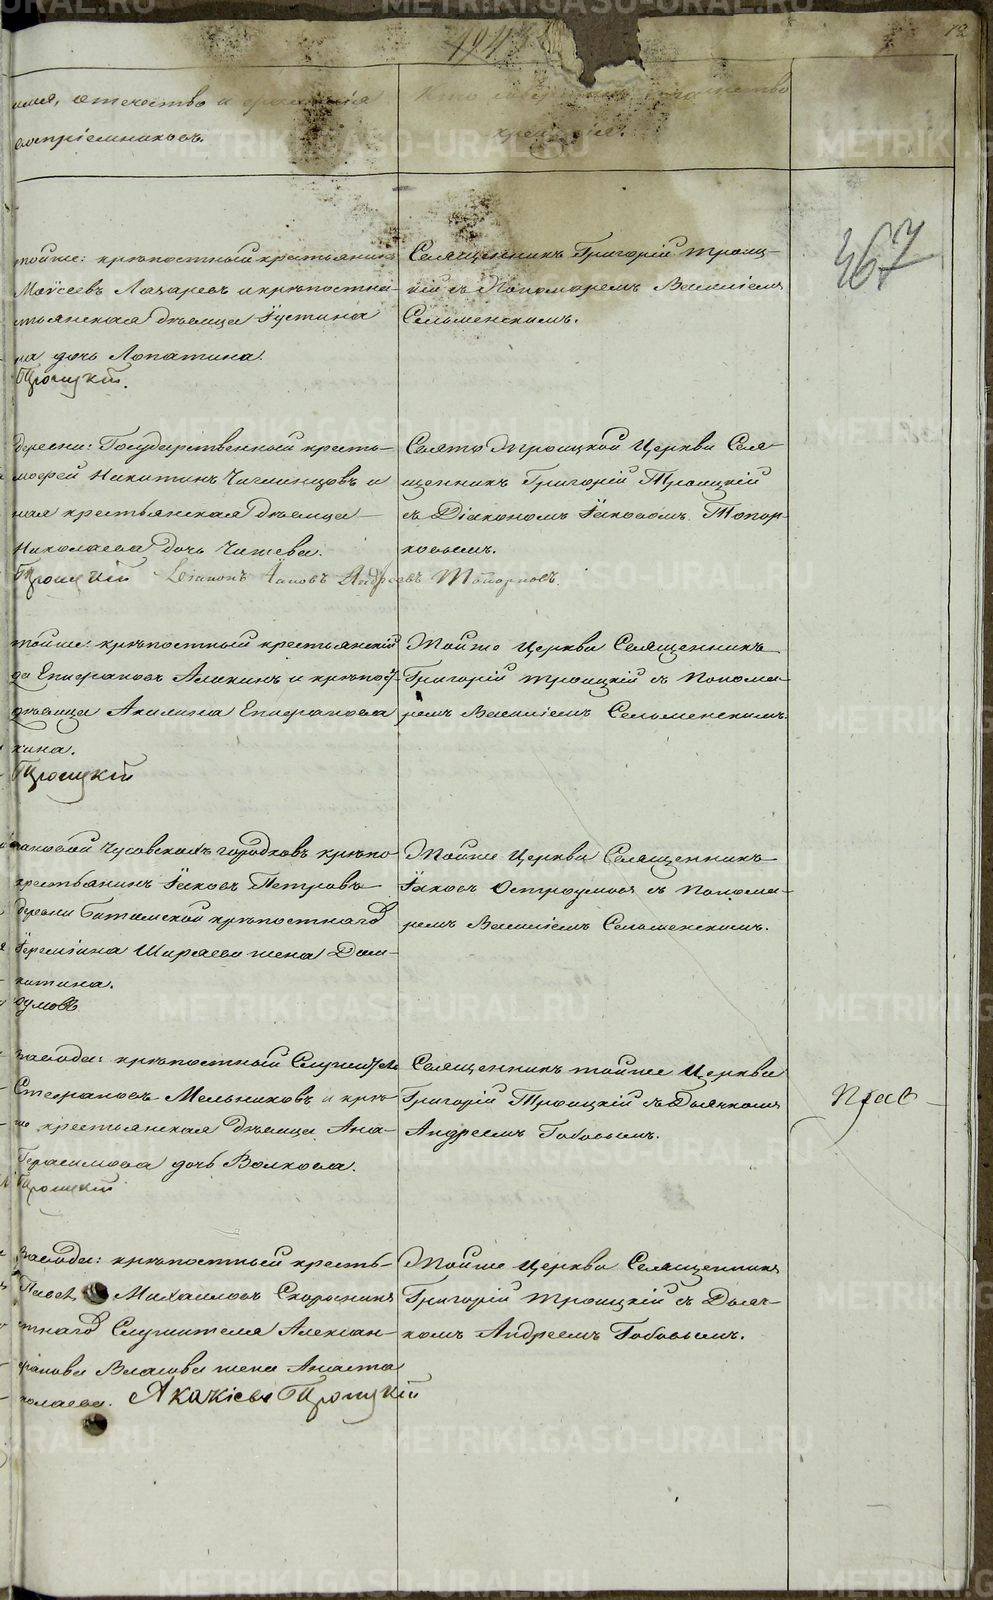 12
имя, отечество и фамилія
воспріемниковъ.
крещенія.
467
тойже: крѣпостный крестьянинъ
Моѵсеевъ Лазаревъ и крѣпостна
стьянская дѣвица Іустина
на дочь Лопатина.
Троицкій.
Священникъ Григорій Троиц-
кій съ Пономаремъ Василіемъ
Сельменскимъ.
деревни: Государственный кресть-
Никитинъ и
ная крестьянская дѣвица
Николаева дочь
Троицкій Діаконъ Іаковъ Топорковъ
Свято Троицкой Церкви Свя-
щенникъ Григорій Троицкій
съ Діакономъ Іаковомъ Топор-
ковымъ.
тойже: крѣпостный крестьянскій
Епифановъ Аликинъ и крѣпост-
дѣвица Акилина Епифанова
кина.
Троицкій
Тойже Церкви Священникъ
Григорій Троицкій съ Понома-
ремъ Василіемъ Сельменскимъ.
Чусовскихъ городковъ крѣпо-
крестьянинъ Іаковъ Петровъ
деревни Битимской крѣпостнаго
Іереміина Ширяева жена Дом-
китина.
думовъ
Тойже Церкви Священникъ
Іаковъ Остроумовъ съ Понома-
ремъ Василіемъ Сельменскимъ.
завода: крѣпостный Служитель
Стефановъ Мельниковъ и крѣ-
крестьянская дѣвица Ана-
Герасимова дочь Волкова.
Троицкій
Священникъ тойже Церкви
Григорій Троицкій съ Дьячкомъ
Андреемъ Бабовымъ.
завода: крѣпостный кресть-
Павелъ Михаиловъ Скорынинъ
стнаго Служителя Алексан-
Власова жена Анаста
колаева. Акакіевъ Троицкій
Тойже Церкви Священникъ
Григорій Троицкій съ Дьяч-
комъ Андреемъ Бабовымъ.
METRIKI.GASO-URAL.RU